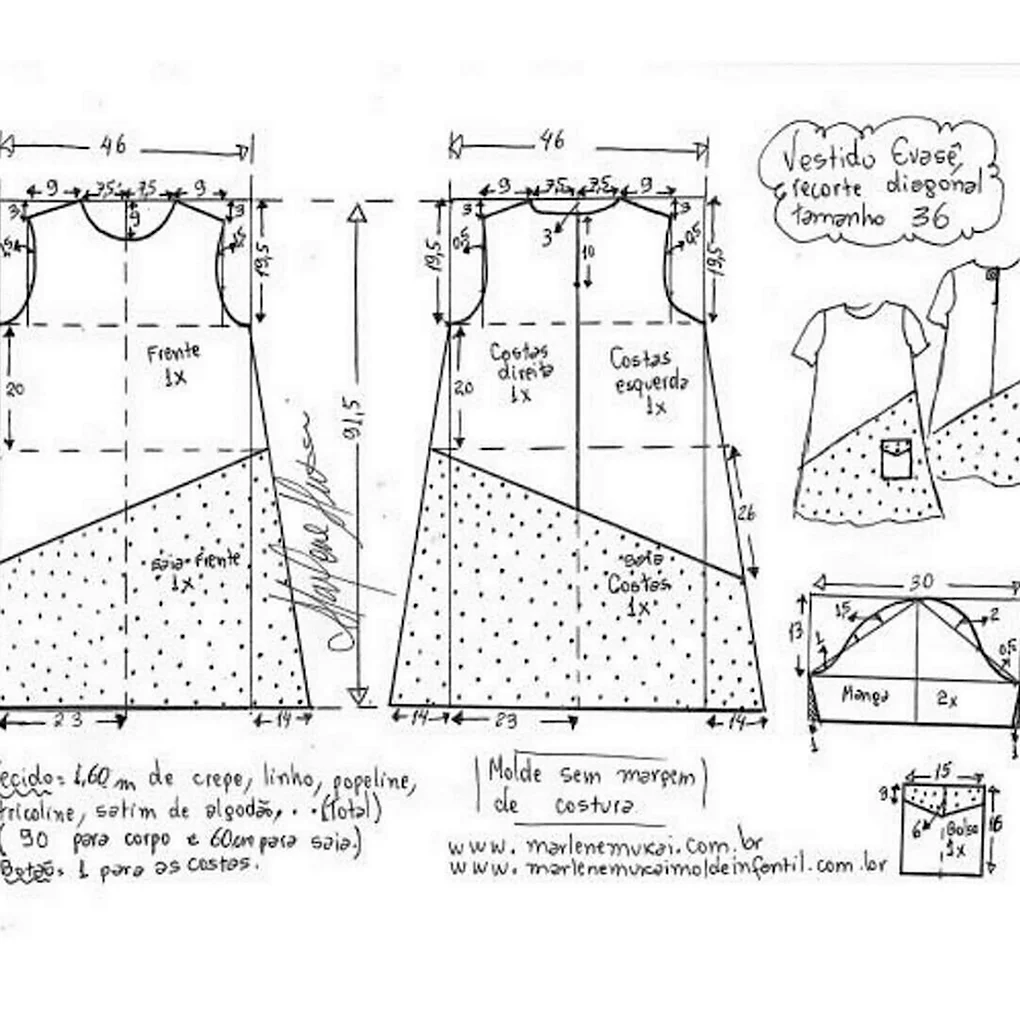 46
46
Vestido Evasê,
recorte diagonal
tamanho 36
9 7,5 7,5 9
9 7,5 7,5 9
3 9 3
3 3
0,5 19,5
19,5 0,5 3 10 0,5 19,5
Frente
1x
Costas
direita
1x
Costas
esquerda
1x
20
20
91,5
26
saia frente
1x
saia
Costas
1x
30
13 1,5 2
1 0,5
Manga 2x
1 1
23 14
14 23 14
ecido: 1,60 m de crepe, linho, popeline,
tricoline, satim de algodão, . . (Total)
( 90 para corpo e 60cm para saia.)
Botão: 1 para as costas.
Molde sem margem
de costura
www. marlenemukai.com.br
www. marlenemukaimoldeinfantil.com.br
15
6 Bolso 16
1x